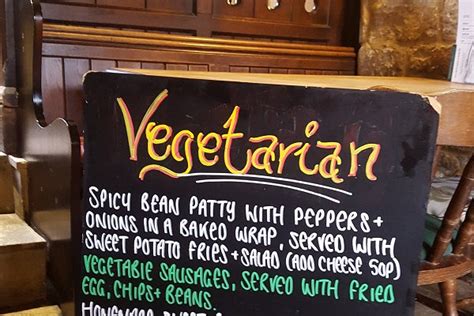 Vegetarian
SPICY BEAN PATTY WITH PEPPERS +
ONIONS IN A BAKED WRAP, SERVED WITH
SWEET POTATO FRIES + SALAD (ADD CHEESE 50p)
VEGETABLE SAUSAGES, SERVED WITH FRIED
EGG, CHIPS + BEANS.